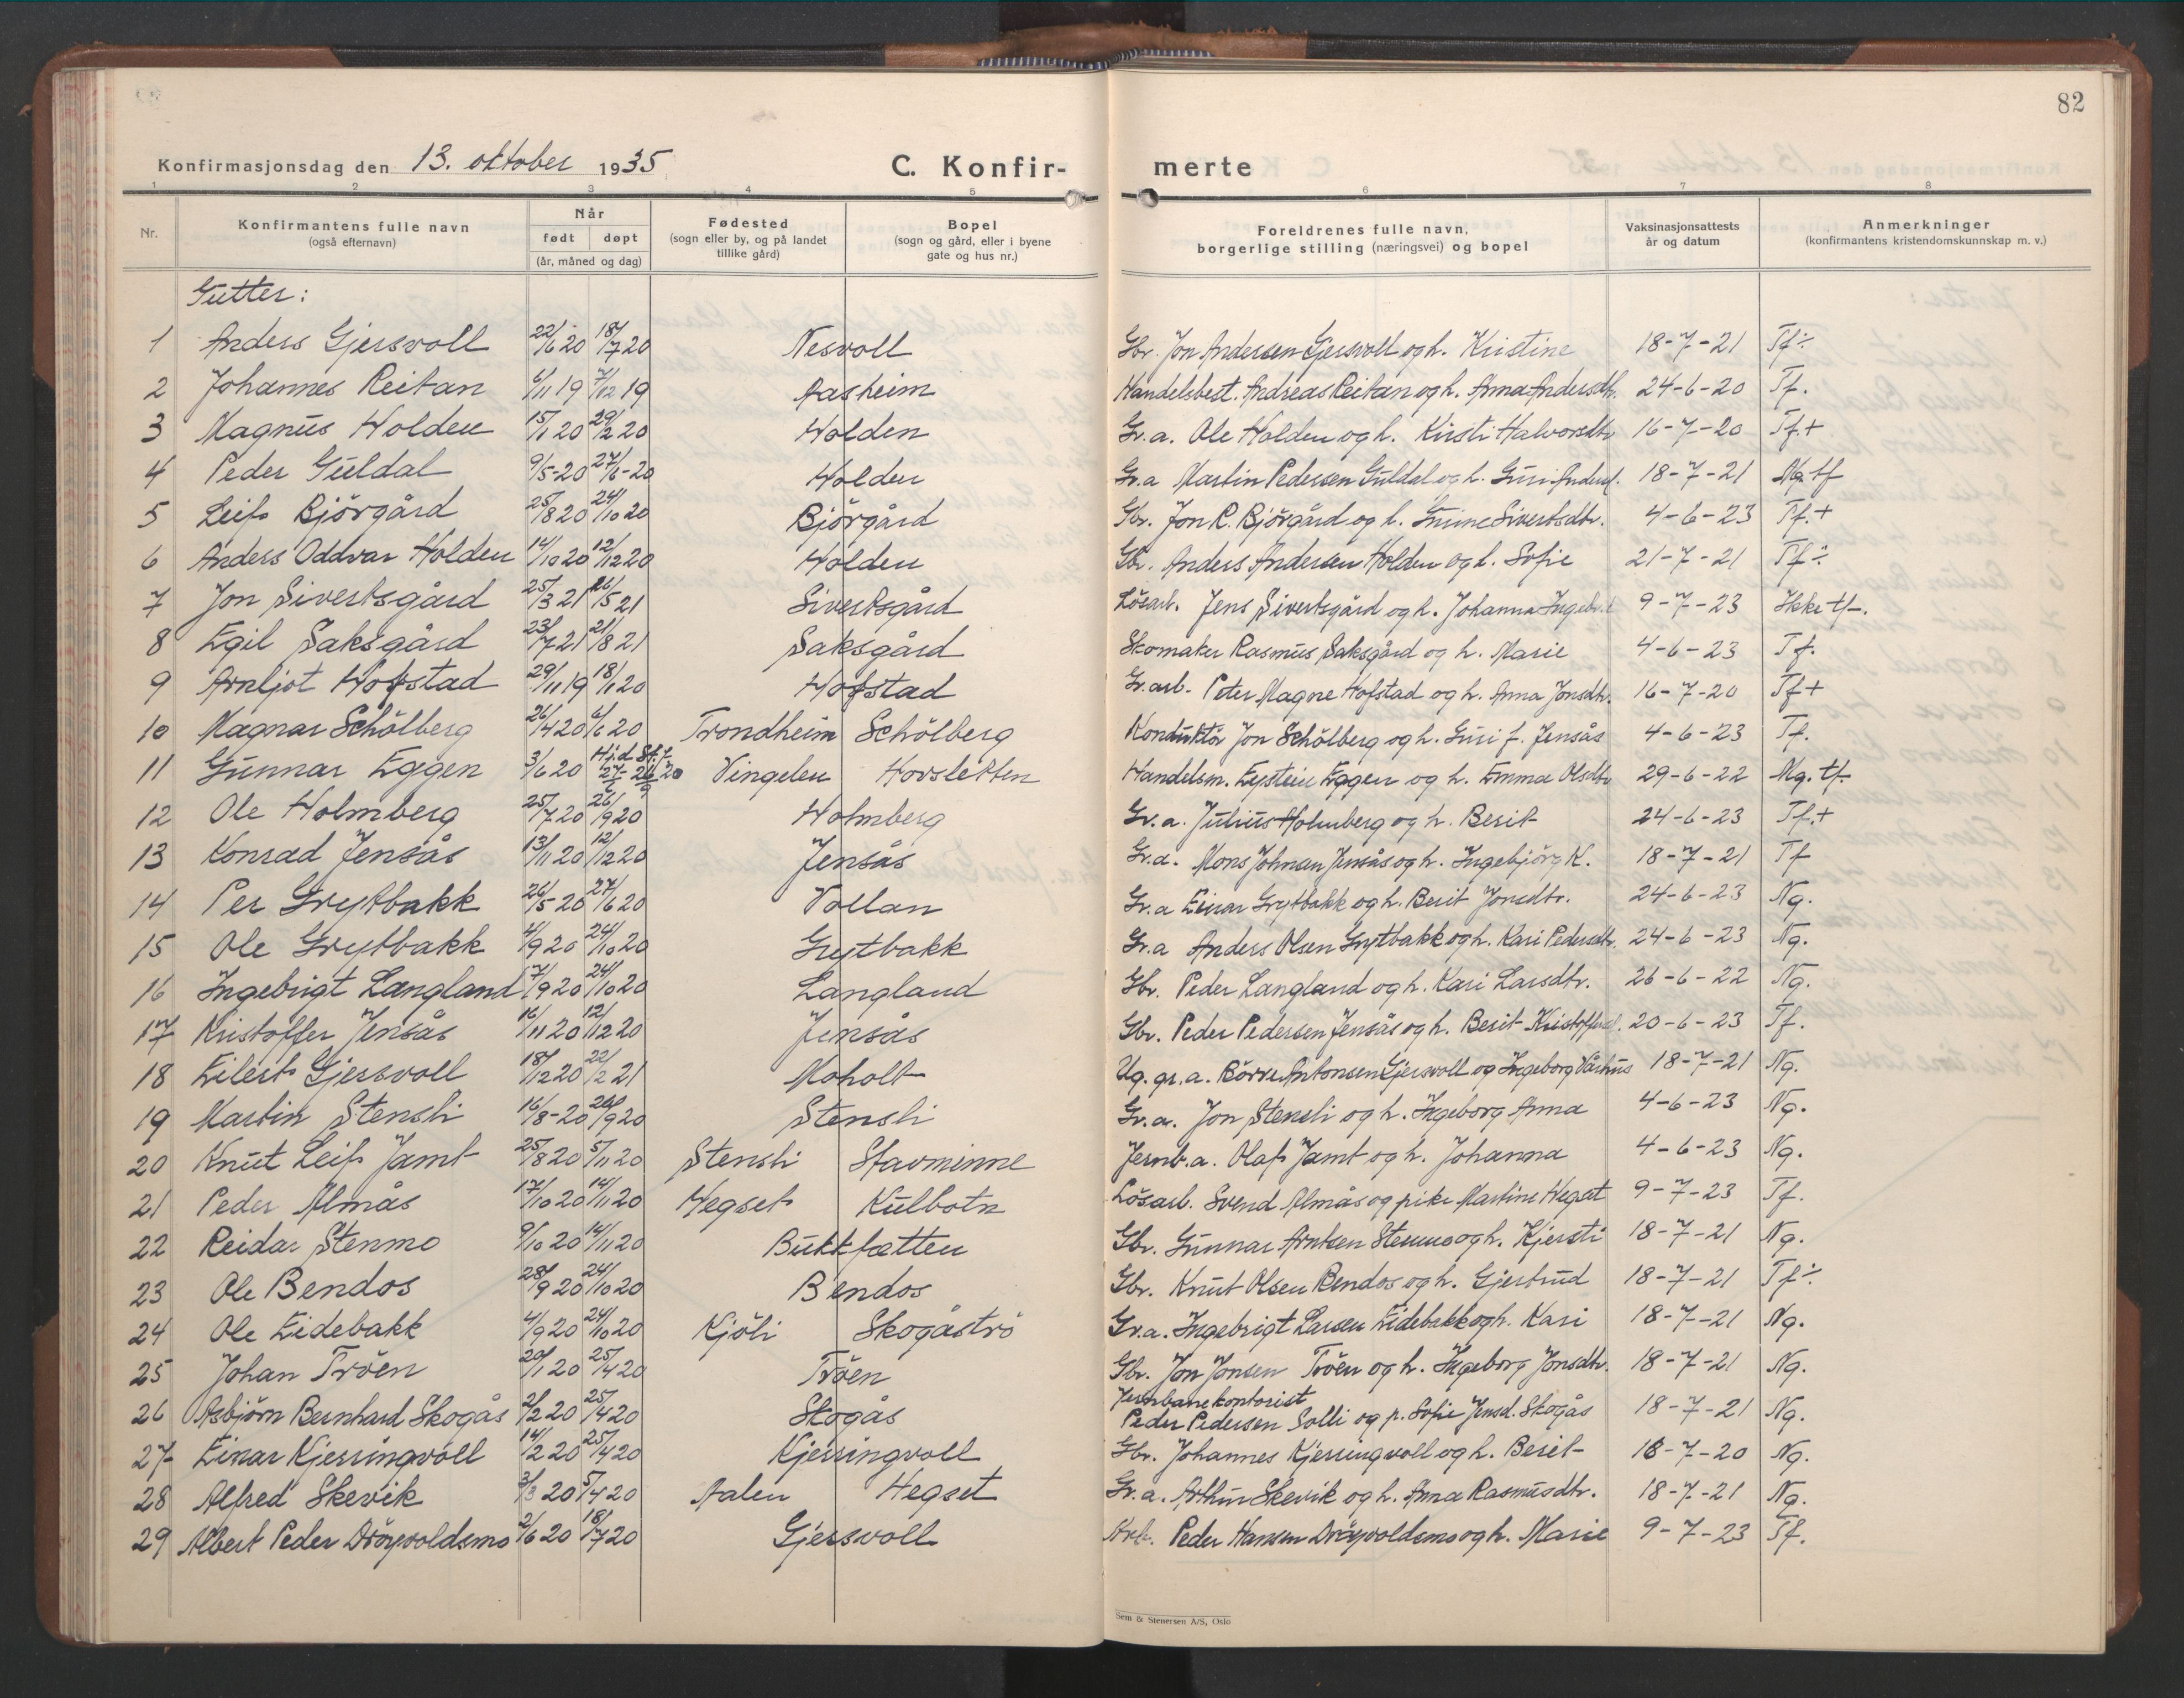 82
Konfirmasjonsdag den 13. oktober 1935 C. Konfir- merte
1 2 3 4 5 6 7 8
Nr. Konfirmantens fulle navn (også efternavn) Når født døpt (år, måned og dag) Fødested (sogn eller by, og på landet tillike gård) Bopel (sogn og gård, eller i byene gate og hus nr.) Foreldrenes fulle navn, borgerlige stilling (næringsvei) og bopel Vaksinasjonsattests år og datum Anmerkninger (konfirmantens kristendomskunnskap m. v.)
Gutter:
1 Anders Gjersvoll 22/6 20 18/7 20 Nesvoll Gbr. Jon Andersen Gjersvoll og h. Kristine 18-7-21 Tf÷
2 Johannes Reitan 6/11 19 7/12 19 Aasheim Handelsbest. Andreas Reitan og h. Anna Andersdtr. 24-6-20 Tf.
3 Magnus Holden 15/1 20 29/2 20 Holden Gr.a. Ole Holden og h. Kirsti Halvorsdtr 16-7-20 Tf.+
4 Peder Guldal 9/5-20 27/6-20 Holden Gr.a Martin Pedersen Guldal og h. Guri Andersd. 18-7-21 Mg. tf
5 Leif Bjørgård 25/8 20 24/10 20 Bjørgård Gbr. Jon R. Bjørgård og h. Gurine Sivertsdtr. 4-6-23 Tf.+
6 Anders Oddvar Holden 14/10 20 12/12 20 Holden Gbr. Anders Andersen Holden og h. Sofie 21-7-21 Tf÷
7 Jon Sivertsgård 25/3 21 16/5 21 Sivertsgård Løsarb. Jens Sivertsgård og h. Johanna 9-7-23 Ikke tf.
8 Egil Saksgård 23/7 21 21/8 21 Saksgård Skomaker Rasmus Saksgård og h. Marie 4-6-23 Tf.
9 Arnljot Hofstad 29/11 19 18/1 20 Hofstad Gr.arb. Peter Magne Hofstad og h. Anna Jonsdtr. 16-7-20 Tf+
10 Magnar Schölberg 26/4 20 6/6 20 Trondheim Schölberg Konduktör Jon Schölberg og h. Guri f. Jensås 4-6-23 Tf.
11 Gunnar Eggen 3/6 20 Hj.d St.f. 27/6 26/9 20 Vingelen Hovsletten Handelsm. Eystein Eggen og h. Emma Olsdtr 29-6-22 Mg. tf.
12 Ole Holmberg 25/7 20 26/9 20 Holmberg Gr.a. Julius Holmberg og h. Berit 24-6-23 Tf.+
13 Konrad Jensås 13/11 20 12/12 20 Jensås Gr.a. Mons Johnsen Jensås og h. Ingebjörg K. 18-7-21 Tf
14 Per Grytbakk 26/5 20 27/6 20 Vollan Gr.a Einar Grytbakk og h. Berit Jonsdtr. 24-6-23 Ng.
15 Ole Grytbakk 4/9 20 24/10 20 Grytbakk Gr.a Anders Olsen Grytbakk og h. Kari Pedersdtr. 24-6-23 Ng.
16 Ingebrigt Langland 7/9 20 24/10 20 Langland Gbr. Peder Langland og h. Kari Larsdtr. 26-6-22 Ng.
17 Kristoffer Jensås 16/11 20 12/12 20 Jensås Gbr. Peder Pedersen Jensås og h. Berit Kristoffersd. 20-6-23 Tf.
18 Eilert Gjersvoll 18/12 20 22/2 21 Moholt Ug. gr.a. Börre Antonsen Gjersvoll og Ingeborg Vårhus 18-7-21 Ng.
19 Martin Stensli 16/8-20 26/9 20 Stensli Gr.a. Jon Stensli og h. Ingeborg Anna 4-6-23 Ng.
20 Knut Leif Jamt 25/8 20 5/11 20 Stensli Stavminne Jernb.a. Olaf Jamt og h. Johanna 4-6-23 Ng.
21 Peder Almås 17/10 20 14/11 20 Hegset Kulbotn Løsarb. Svend Almås og pike Martine Hegset 9-7-23 Tf.
22 Reidar Stenmo 9/10 20 14/11 20 Bukkfætten Gbr. Gunnar Arntsen Stenmo og h. Kjersti 18-7-21 Ng.
23 Ole Bendos 28/9 20 24/10 20 Bendos Gbr. Knut Olsen Bendos og h. Gjertrud 18-7-21 Tf÷
24 Ole Eidebakk 4/9 20 24/10 20 Kjöli Skogåströ Gr.a. Ingebrigt Larsen Eidebakk og h. Kari 18-7-21 Ng.
25 Johan Tröen 20/1 20 25/4 20 Tröen Gbr. Jon Jonsen Tröen og h. Ingeborg Jonsdtr. 18-7-21 Ng.
26 Asbjörn Bernhard Skogås 2/2 20 25/4 20 Skogås Jernbanekontorist Peder Pedersen Solli og p. Sofie Jensd. Skogås 18-7-21 Ng.
27 Einar Kjerringvoll 14/2 20 25/4 20 Kjerringvoll Gbr. Johannes Kjerringvoll og h. Berit 16-7-20 Ng.
28 Alfred Skevik 3/3 20 5/4 20 Aalen Hegset Gr.a. Arthur Skevik og h. Anna Rasmusdtr. 18-7-21 Ng.
29 Albert Peder Dröyvoldsmo 2/6 20 18/7 20 Gjersvoll Arb. Peder Hansen Dröyvoldsmo og h. Marie 9-7-23 Tf.
Sem & Stenersen A/S, Oslo